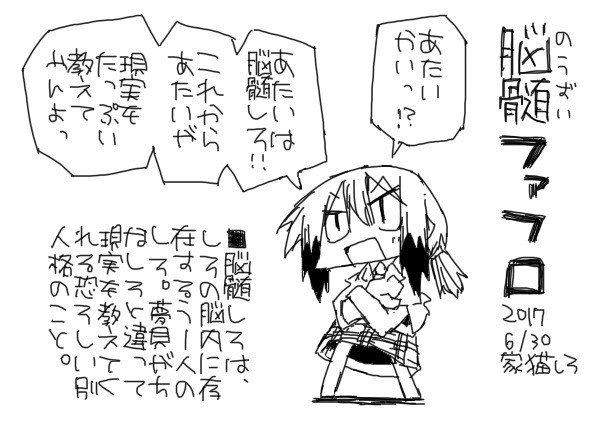 のうずい
脳髄
ファフロ
2017
6/30
家猫しろ
あたい
かいっ!?
あたいは
脳髄しろ!!
これから
あたいが
現実を
たっぷり
教えて
やんよっ
■脳髄しろは、
しろの脳内に存
在するう一人の
しろ。夢見がち
なしろと違って
現実を教えてく
れる恐ろしい別
人格のこと。